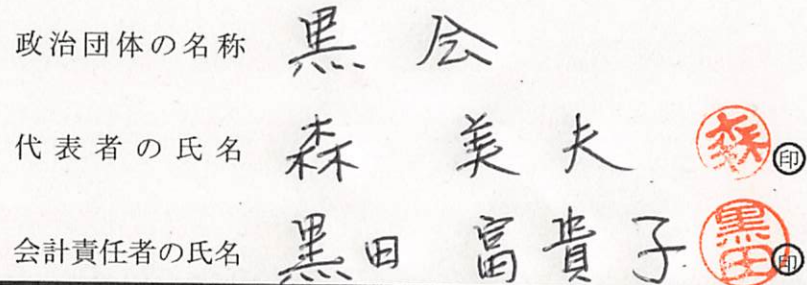 政治団体の名称 黒会
代表者の氏名 森 美夫 森 印
会計責任者の氏名 黒田 富貴子 黒田 印